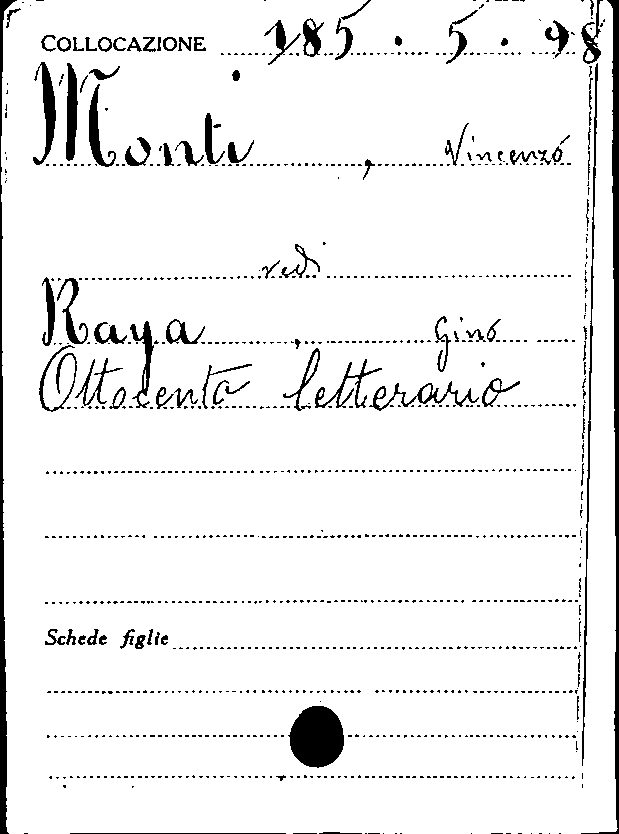 COLLOCAZIONE 185.5.98
Monti, Vincenzo
vedi
Raya, Gino
Ottocento letterario
Schede figlie